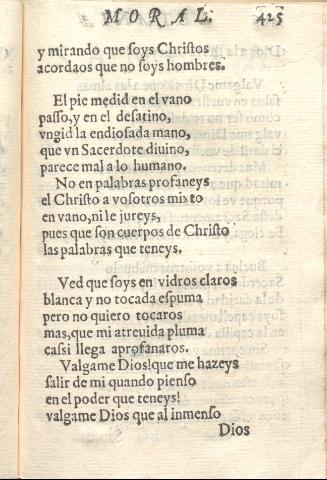 MORAL. 425
y mirando que soys Christos
acordaos que no soys hombres.
El pie medid en el vano
passo, y en el desatino,
vngid la endiosada mano,
que vn Sacerdote diuino,
parece mal a lo humano.
No en palabras profaneys
el Christo a vosotros mixto
en vano, ni le jureys,
pues que son cuerpos de Christo
las palabras que teneys.
Ved que soys en vidros claros
blanca y no tocada espuma
pero no quiero tocaros
mas, que mi atreuida pluma
cassi llega aprofanaros.
Valgame Dios! que me hazeys
salir de mi quando pienso
en el poder que teneys!
valgame Dios que al inmenso
Dios